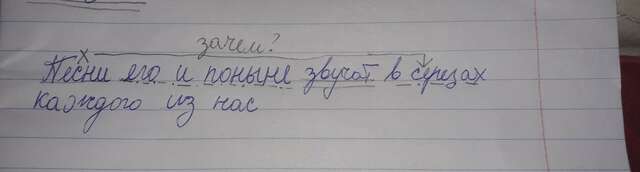 зачем?
х
Песни его и поныне звучат в серезах
каждого из нас